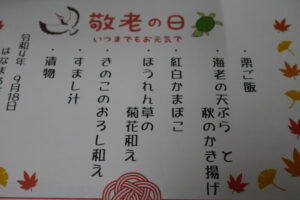 敬老の日
いつまでもお元気で
・栗ご飯
・海老の天ぷら と
秋のかき揚げ
・紅白かまぼこ
・ほうれん草の
菊花和え
・きのこのおろし和え
・すまし汁
・漬物
令和4年 9月18日